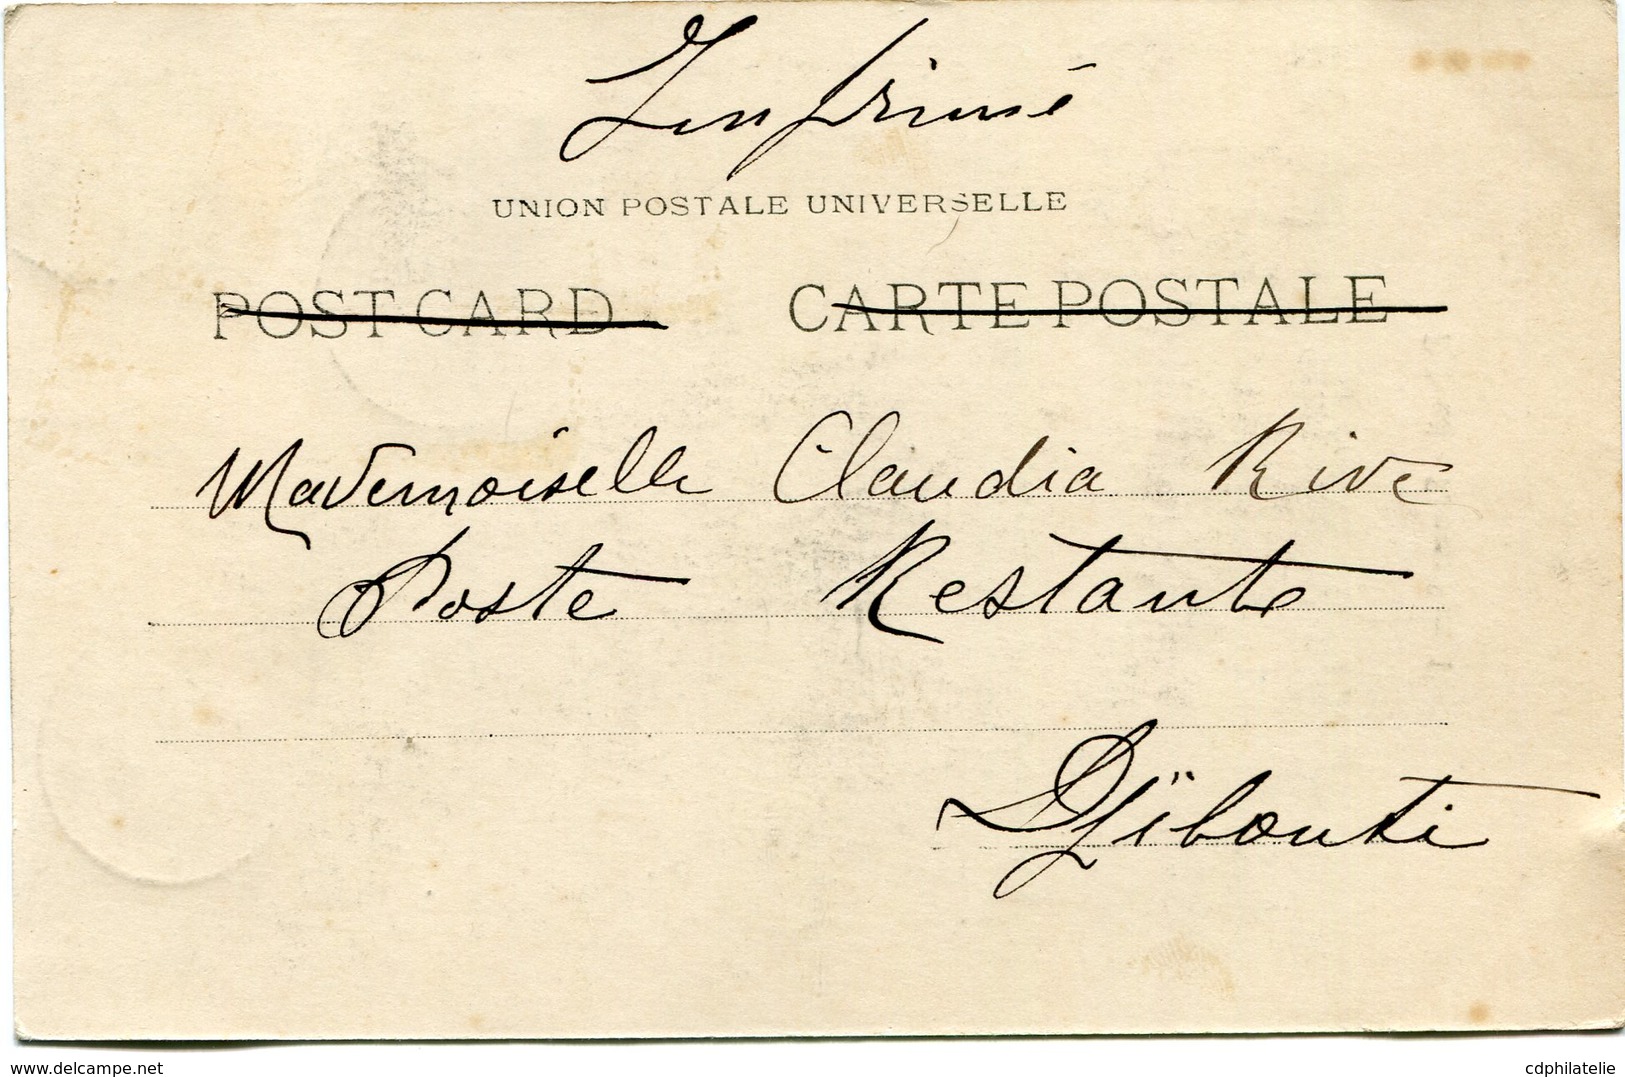 Imprimé
UNION POSTALE UNIVERSELLE
POST CARD CARTE POSTALE
Mademoiselle Claudia Rive
Poste Restante
Djibouti
www.delcampe.net
cdphilatelie